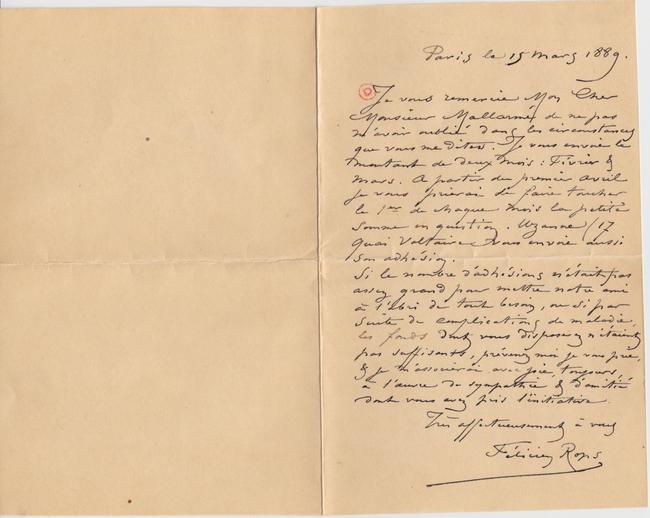 Paris le 15 mars 1889.
Je vous remercie Mon Cher
Monsieur Mallarmé, de ne pas
m'avoir oublié dans les circonstances
que vous me dites. Je vous envoie le
montant de deux mois : Février &
Mars. A partir du premier avril
je vous prierai de faire toucher
le 1er de chaque mois la petite
somme en question. Uzanne /17
Quai Voltaire vous envoie aussi
son adhésion.
Si le nombre d'adhésions n'était pas
assez grand pour mettre notre ami
à l'abri de tout besoin, ou si par
suite de complications de maladie,
les fonds dont vous disposez n'étaient
pas suffisants, prévenez moi je vous prie,
& je m'associerai avec joie, toujours,
à l'œuvre de sympathie & d'amitié
dont vous avez pris l'initiative.
Très affectueusement à vous
Félicien Rops